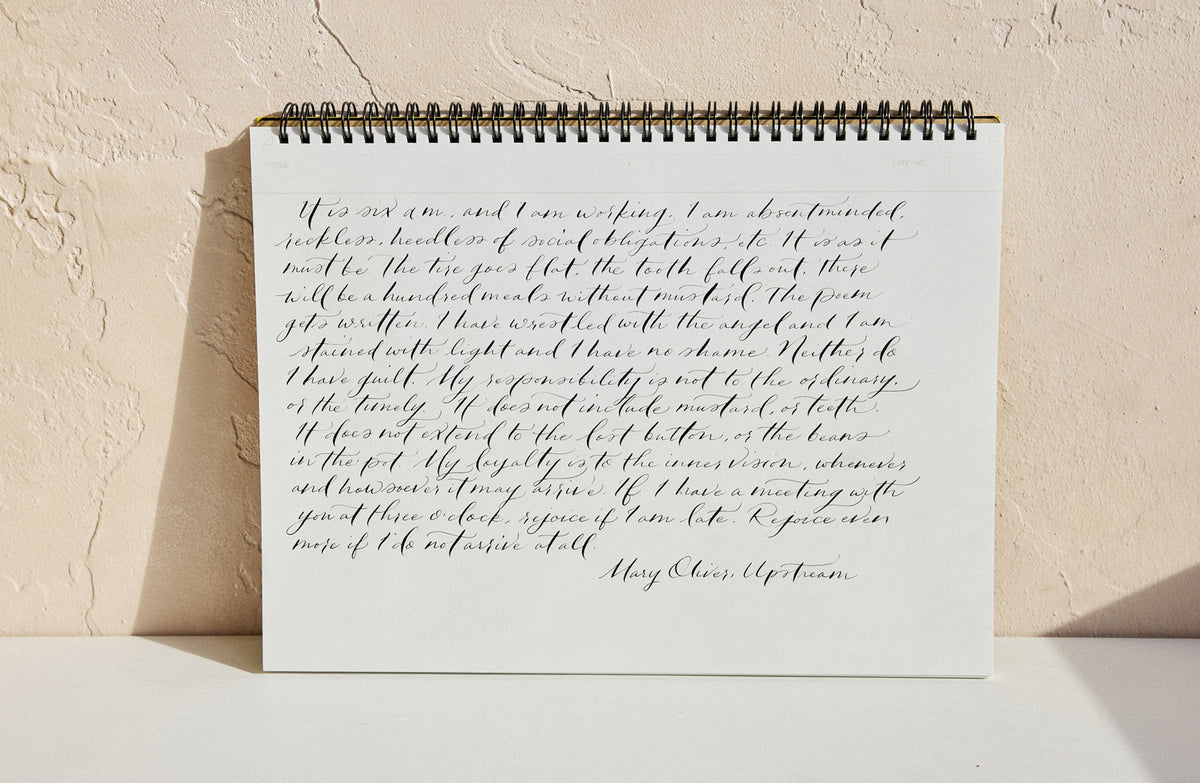 TITLE:
DATE / NO.
It is six a.m., and I am working. I am absentminded,
reckless, heedless of social obligations, etc. It is as it
must be. The tire goes flat, the tooth falls out, there
will be a hundred meals without mustard. The poem
gets written. I have wrestled with the angel and I am
stained with light and I have no shame. Neither do
I have guilt. My responsibility is not to the ordinary,
or the timely. It does not include mustard, or teeth.
It does not extend to the lost button, or the beans
in the pot. My loyalty is to the inner vision, whenever
and howsoever it may arrive. If I have a meeting with
you at three o'clock, rejoice if I am late. Rejoice even
more if I do not arrive at all.
Mary Oliver, Upstream